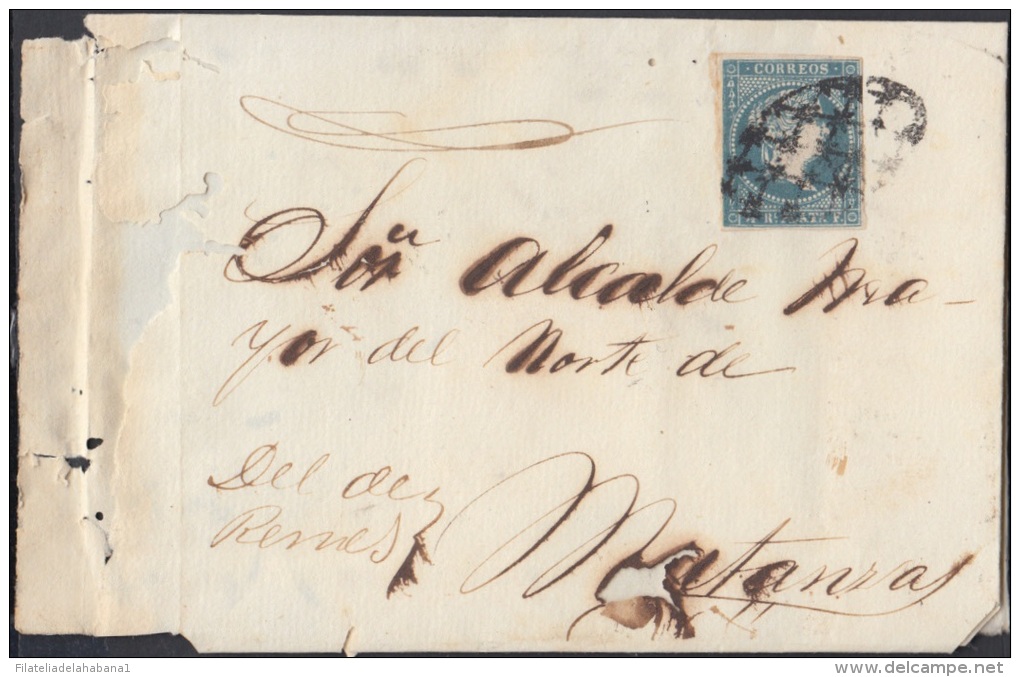 CORREOS
R. PLATA F.
Sor Alcalde Ma-
yor del Norte de
Matanzas
Del de
Remes
Filateliadelahabana1
www.delcampe.net